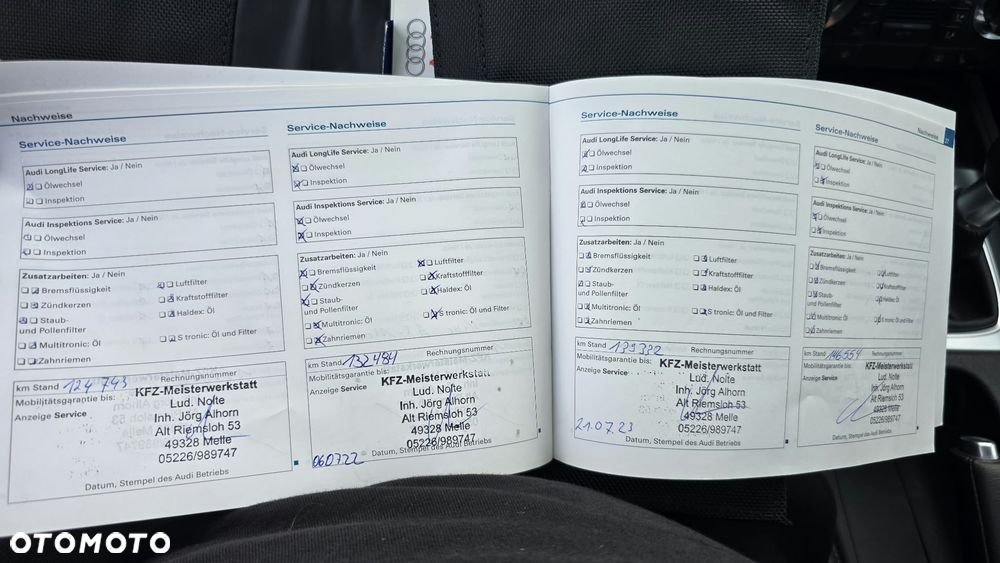 Nachweise
Service-Nachweise
Audi LongLife Service: Ja / Nein
Ölwechsel
Inspektion
Audi Inspektions Service: Ja / Nein
Ölwechsel
Inspektion
Zusatzarbeiten: Ja / Nein
Bremsflüssigkeit
Luftfilter
Zündkerzen
Kraftstofffilter
Staub-
und Pollenfilter
Haldex: Öl
Multitronic: Öl
S tronic: Öl und Filter
Zahnriemen
km Stand 124 743
Rechnungsnummer
Mobilitätsgarantie bis:
Anzeige Service
KFZ-Meisterwerkstatt
Lud. Nolte
Inh. Jörg Alhorn
Alt Riemsloh 53
49328 Melle
05226/989747
Datum, Stempel des Audi Betriebs
Service-Nachweise
Audi LongLife Service: Ja / Nein
Ölwechsel
Inspektion
Audi Inspektions Service: Ja / Nein
Ölwechsel
Inspektion
Zusatzarbeiten: Ja / Nein
Bremsflüssigkeit
Luftfilter
Zündkerzen
Kraftstofffilter
Staub-
und Pollenfilter
Haldex: Öl
Multitronic: Öl
S tronic: Öl und Filter
Zahnriemen
km Stand 132484
Rechnungsnummer
Mobilitätsgarantie bis:
Anzeige Service
KFZ-Meisterwerkstatt
Lud. Nolte
Inh. Jörg Alhorn
Alt Riemsloh 53
49328 Melle
05226/989747
060722
Datum, Stempel des Audi Betriebs
Service-Nachweise
Audi LongLife Service: Ja / Nein
Ölwechsel
Inspektion
Audi Inspektions Service: Ja / Nein
Ölwechsel
Inspektion
Zusatzarbeiten: Ja / Nein
Bremsflüssigkeit
Luftfilter
Zündkerzen
Kraftstofffilter
Staub-
und Pollenfilter
Haldex: Öl
Multitronic: Öl
S tronic: Öl und Filter
Zahnriemen
km Stand 139392
Rechnungsnummer
Mobilitätsgarantie bis:
Anzeige Service
KFZ-Meisterwerkstatt
Lud. Nolte
Inh. Jörg Alhorn
Alt Riemsloh 53
49328 Melle
05226/989747
21.07.23
Datum, Stempel des Audi Betriebs
Nachweise
Service-Nachweise
Audi LongLife Service: Ja / Nein
Ölwechsel
Inspektion
Audi Inspektions Service: Ja / Nein
Ölwechsel
Inspektion
Zusatzarbeiten: Ja / Nein
Bremsflüssigkeit
Luftfilter
Zündkerzen
Kraftstofffilter
Staub-
und Pollenfilter
Haldex: Öl
Multitronic: Öl
S tronic: Öl und Filter
Zahnriemen
km Stand 146554
Rechnungsnummer
Mobilitätsgarantie bis:
Anzeige Service
KFZ-Meisterwerkstatt
Lud. Nolte
Inh. Jörg Alhorn
Alt Riemsloh 53
49328 Melle
05226/989747
Datum, Stempel des Audi Betriebs
OTOMOTO